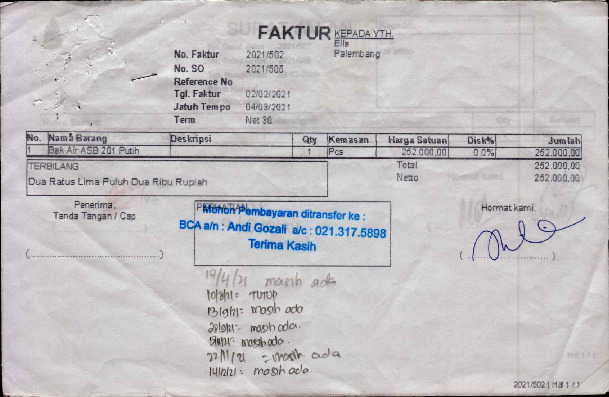 FAKTUR
KEPADA YTH.
Ella
Palembang
No. Faktur 2021/502
No. SO 2021/505
Reference No
Tgl. Faktur 02/02/2021
Jatuh Tempo 04/03/2021
Term Net 30
No. Nama Barang Deskripsi Qty Kemasan Harga Satuan Disk% Jumlah
1 Bak Air ASB 201 Putih 1 Pcs 252.000,00 0,0% 252.000,00
TERBILANG
Total 252.000,00
Dua Ratus Lima Puluh Dua Ribu Rupiah
Netto 252.000,00
Penerima,
Tanda Tangan / Cap
PERHATIAN
Mohon Pembayaran ditransfer ke :
BCA a/n : Andi Gozali a/c : 021.317.5898
Terima Kasih
Hormat kami,
19/4/21 masih ada
10/8/21= TUTUP
13/9/21= masih ada
masih ada.
masih ada.
22/11/21 = masih ada
14/12/21= masih ada
2021/502 | Hal 1 / 1